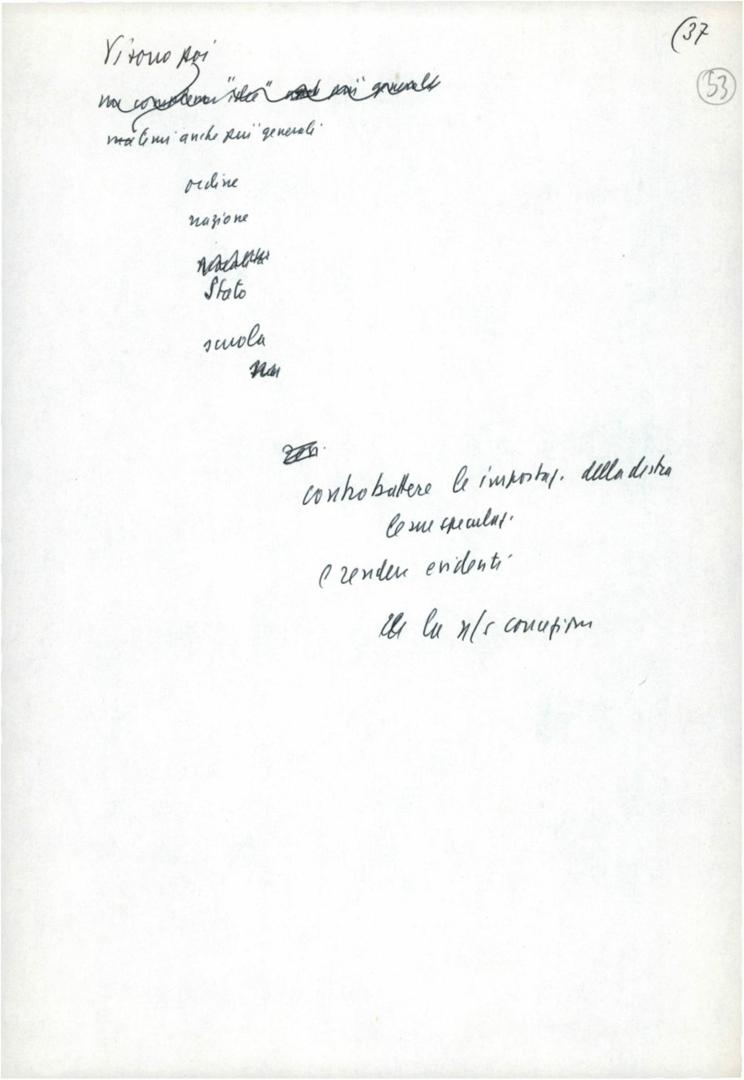 (37
53
Vi sono poi
temi anche più generali
ordine
nazione
Stato
scuola
controbattere le impostaz. della destra
le sue speculaz.
e rendere evidenti
la n/s concezione